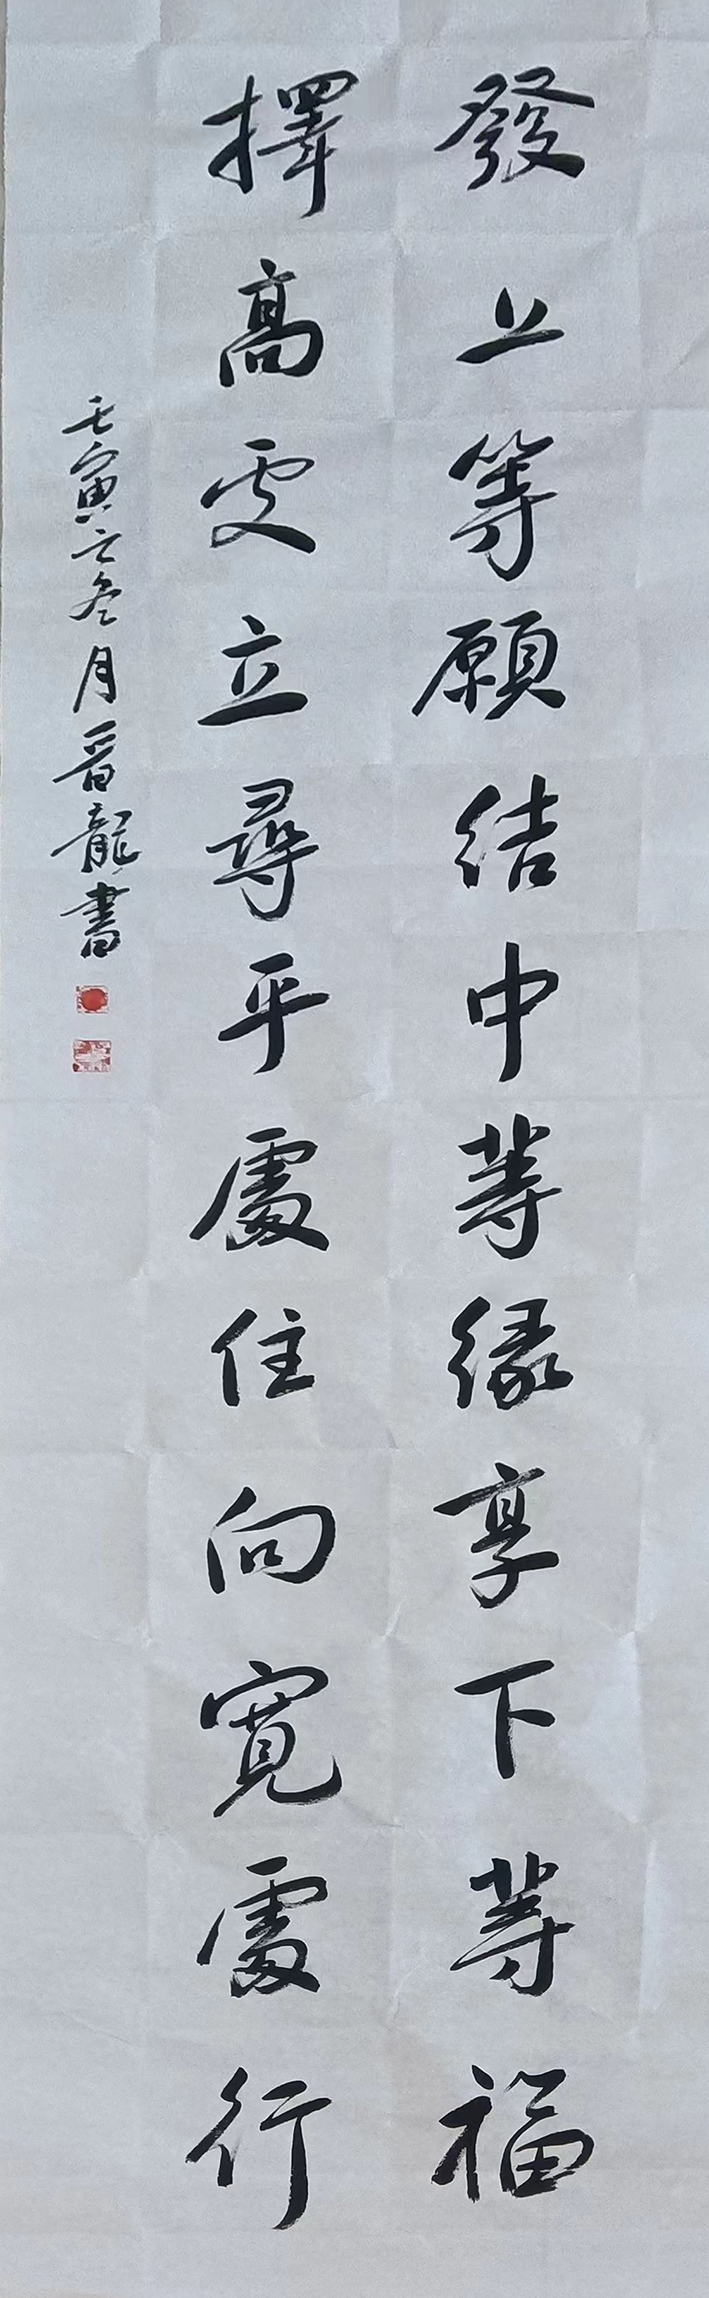 發上等願結中等緣享下等福
擇高處立尋平處住向寬處行
壬寅之冬月晉龍書